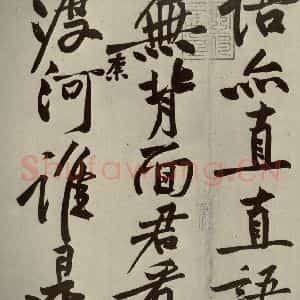 語亦直直語
無背面君看
柰
渡河誰是
Shufawang.CN